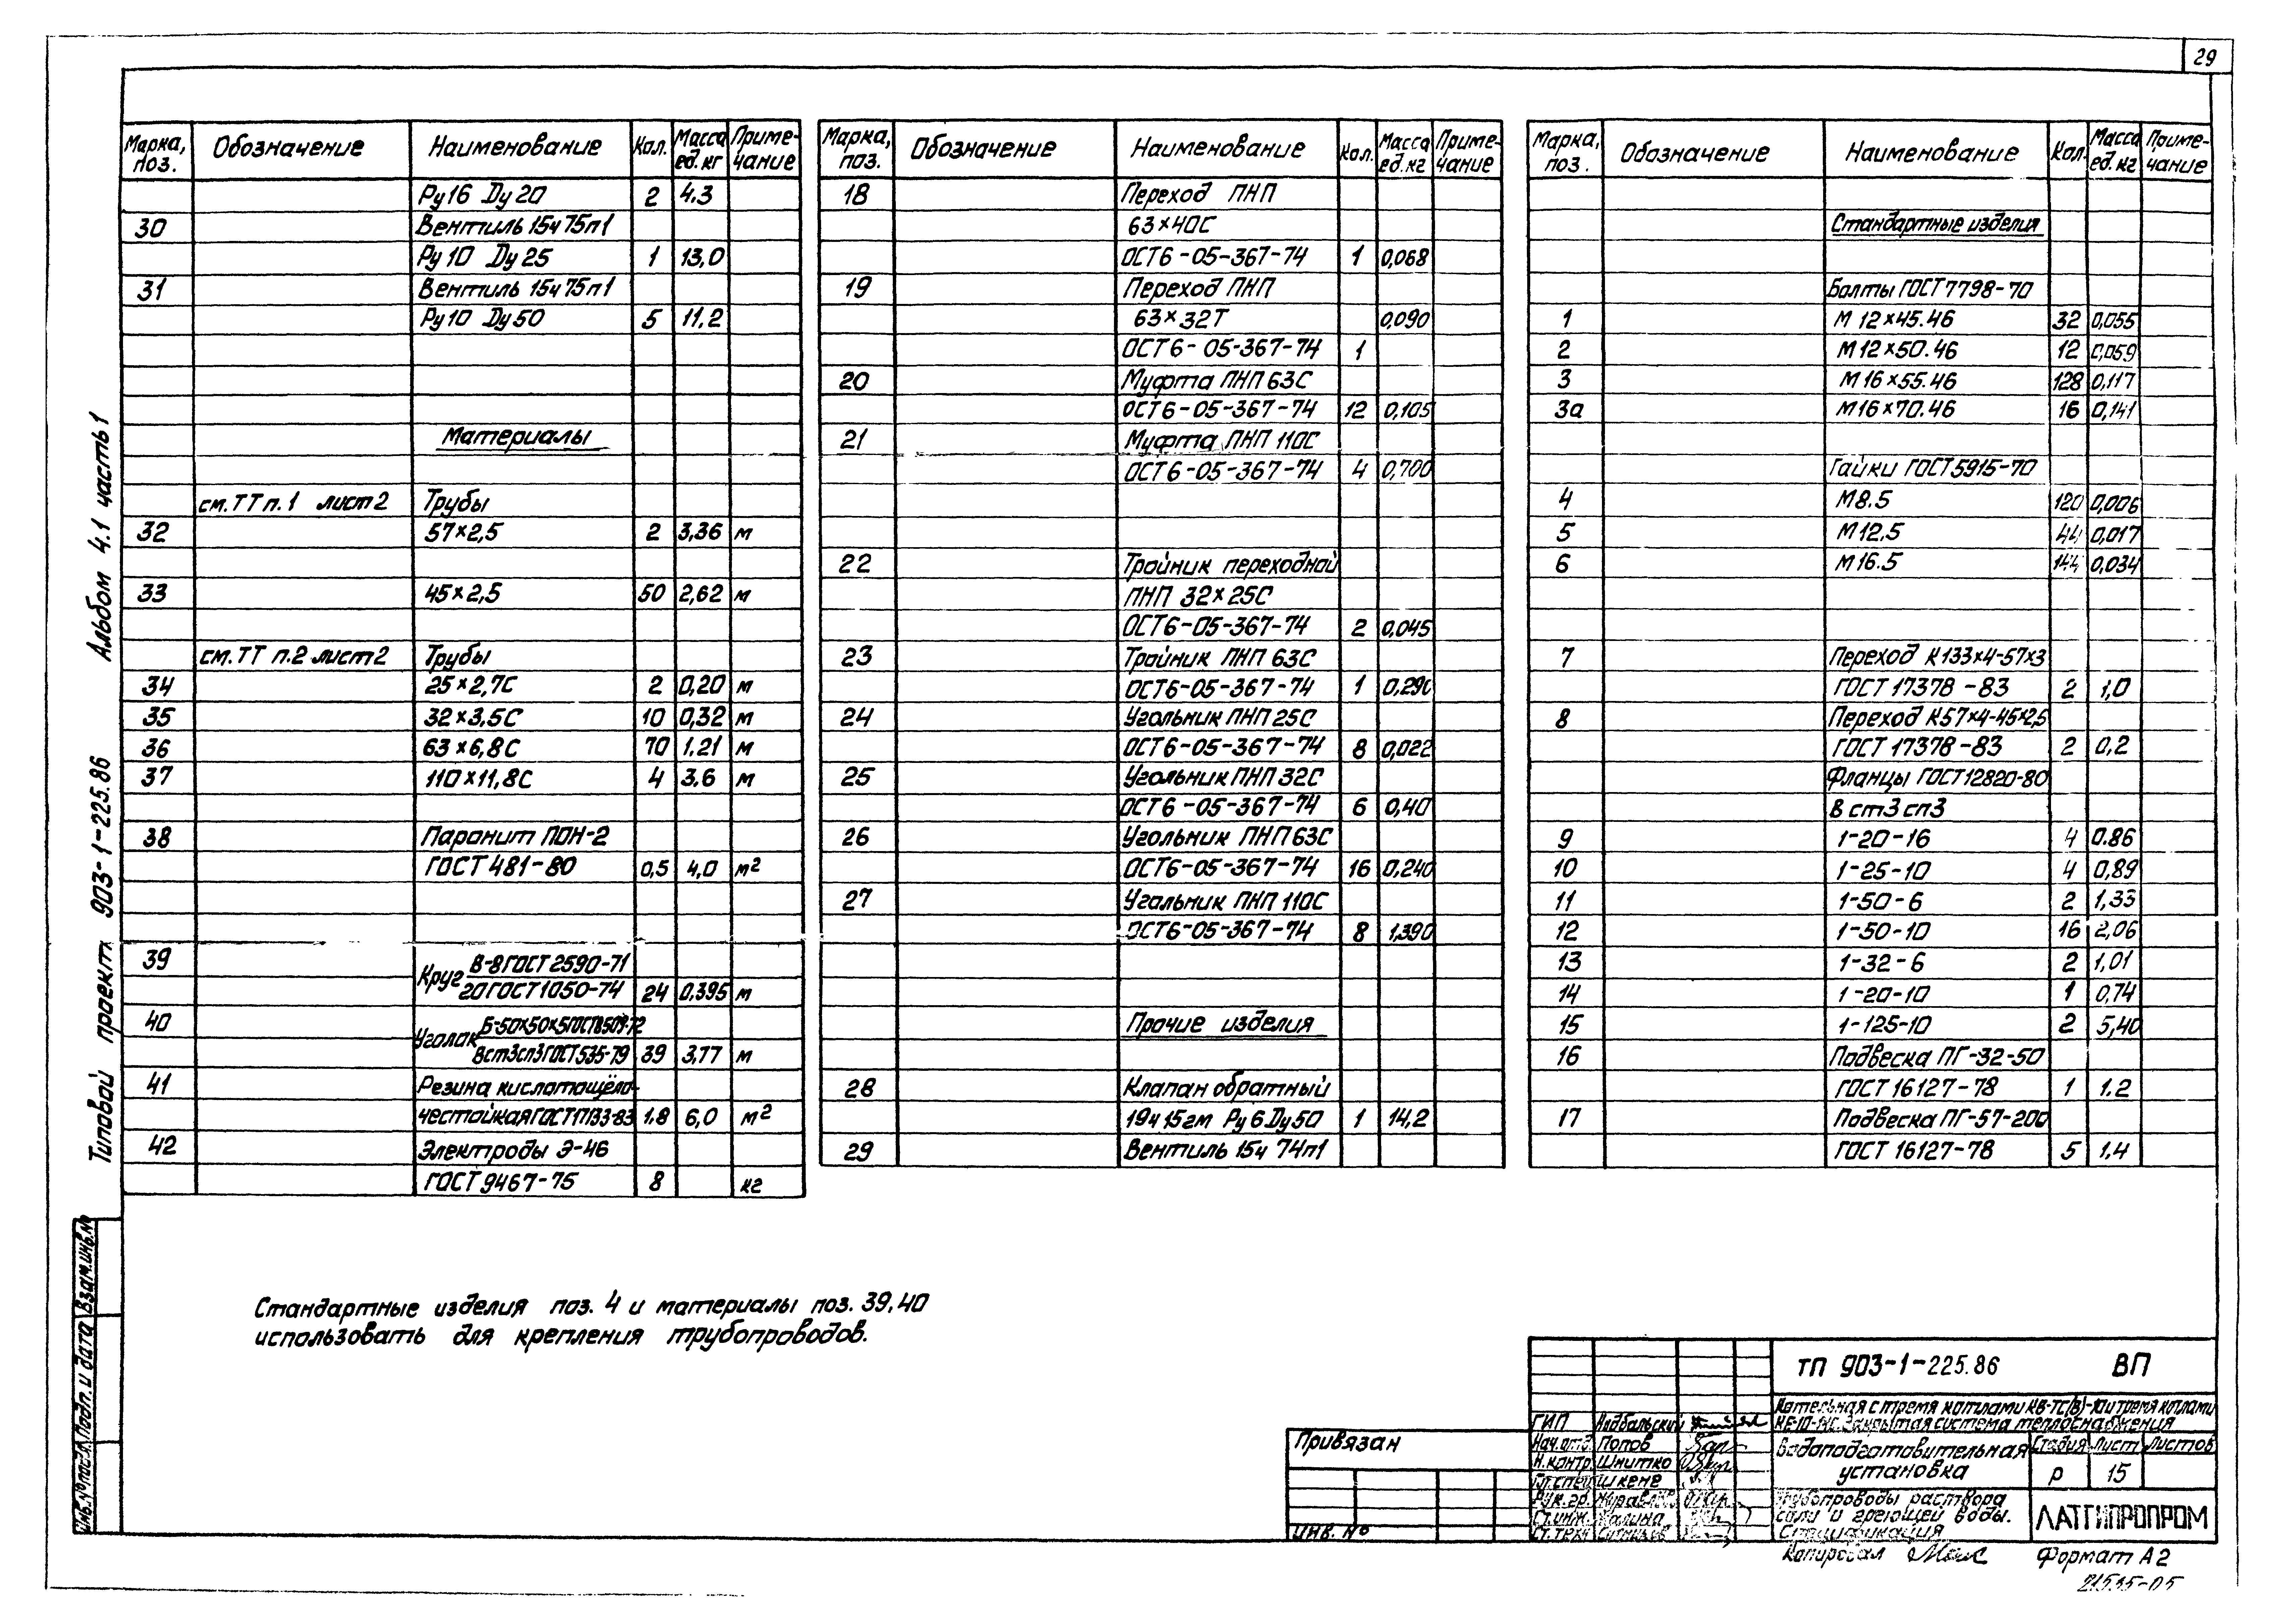 29
Марка, поз. Обозначение Наименование Кол. Масса ед. кг Примечание
Ру16 Ду 20 2 4.3
30 Вентиль 15ч 75п1
Ру 10 Ду 25 1 13,0
31 Вентиль 15ч 75п1
Ру10 Ду 50 5 11.2
Материалы
см. ТТ п.1 лист 2 Трубы
32 57×2,5 2 3,36 м
33 45×2,5 50 2,62 м
см. ТТ п.2 лист 2 Трубы
34 25×2,7С 2 0,20 м
35 32×3,5С 10 0,32 м
36 63×6,8С 70 1.21 м
37 110×11,8С 4 3.6 м
38 Паронит ПОН-2
ГОСТ 481-80 0,5 4,0 м²
39 Круг В-8 ГОСТ 2590-71
20 ГОСТ 1050-74 24 0,395 м
40 Уголок Б-50×50×5 ГОСТ 8509-72
Вст3сп3 ГОСТ 535-79 39 3,77 м
41 Резина кислотощёло-
честойкая ГОСТ 17133-83 1.8 6,0 м²
42 Электроды Э-46
ГОСТ 9467-75 8 кг
Марка, поз. Обозначение Наименование Кол. Масса ед. кг Примечание
18 Переход ПНП
63×40С
ОСТ 6-05-367-74 1 0,068
19 Переход ПНП
63×32Т 0,090
ОСТ 6-05-367-74 1
20 Муфта ПНП 63С
ОСТ 6-05-367-74 12 0,105
21 Муфта ПНП 110С
ОСТ 6-05-367-74 4 0,700
22 Тройник переходной
ПНП 32×25С
ОСТ 6-05-367-74 2 0,045
23 Тройник ПНП 63С
ОСТ 6-05-367-74 1 0,290
24 Угольник ПНП 25С
ОСТ 6-05-367-74 8 0,022
25 Угольник ПНП 32С
ОСТ 6-05-367-74 6 0,40
26 Угольник ПНП 63С
ОСТ 6-05-367-74 16 0,240
27 Угольник ПНП 110С
ОСТ 6-05-367-74 8 1,390
Прочие изделия
28 Клапан обратный
19ч 15гм Ру 6 Ду 50 1 14,2
29 Вентиль 15ч 74п1
Марка, поз. Обозначение Наименование Кол. Масса ед. кг Примечание
Стандартные изделия
Болты ГОСТ 7798-70
1 М 12×45.46 32 0,055
2 М 12×50.46 12 0,059
3 М 16×55.46 128 0,117
3а М 16×70.46 16 0,141
Гайки ГОСТ 5915-70
4 М8.5 120 0,006
5 М12.5 44 0,017
6 М16.5 144 0,034
7 Переход К133×4-57×3
ГОСТ 17378-83 2 1,0
8 Переход К57×4-45×2,5
ГОСТ 17378-83 2 0,2
Фланцы ГОСТ 12820-80
В ст3 сп3
9 1-20-16 4 0.86
10 1-25-10 4 0,89
11 1-50-6 2 1,33
12 1-50-10 16 2,06
13 1-32-6 2 1,01
14 1-20-10 1 0,74
15 1-125-10 2 5,40
16 Подвеска ПГ-32-50
ГОСТ 16127-78 1 1.2
17 Подвеска ПГ-57-200
ГОСТ 16127-78 5 1.4
Альбом 4.1 часть 1
Типовой проект 903-1-225.86
Взам. инв. №
Подп. и дата
Инв. № подл.
Стандартные изделия поз. 4 и материалы поз. 39,40
использовать для крепления трубопроводов.
Привязан
Инв. №
ТП 903-1-225.86 ВП
Котельная с тремя котлами КВ-ТС(В)-10 и тремя котлами
КЕ-10-14С. Закрытая система теплоснабжения
ГИП Подбальский
Нач. отд. Попов
Н. контр. Шнитко
Гл. спец. Шкене
Рук. гр.
Ст. инж. Калина
Ст. техн.
Водоподготовительная установка
Стадия Лист Листов
Р 15
Трубопроводы раствора
соли и греющей воды.
Спецификация
ЛАТГИПРОПРОМ
Копировал
Формат А2
21535-05